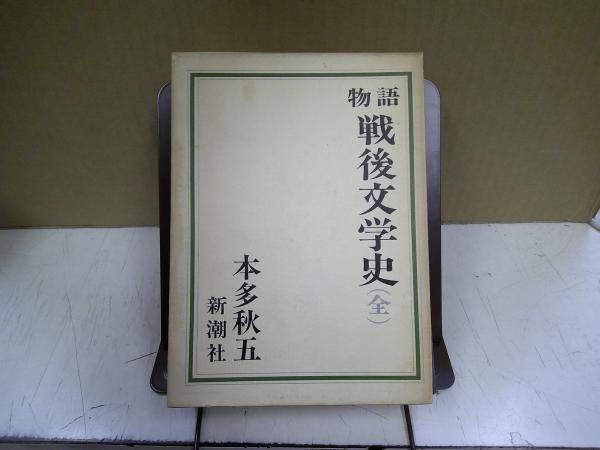 物語
戦後文学史(全)
本多秋五
新潮社